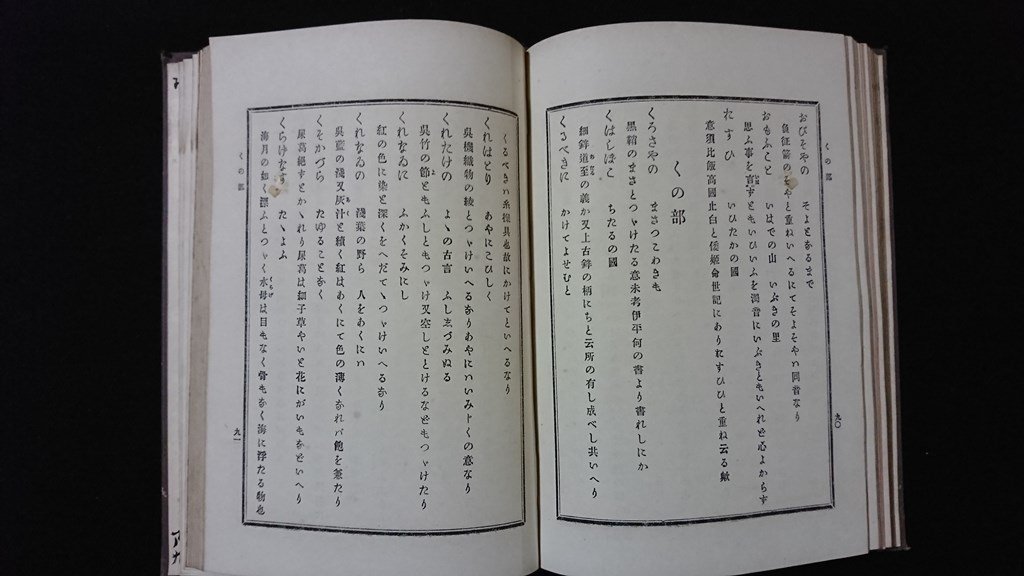 くの部
九〇
おびそやの　そよとなるまで
負征箭のそやと重ねいへるにてそよそやハ同音なり
おもふこと　いはでの山　いぶきの里
思ふ事を言ずともいひいふを潤音にいぶきともいへれど心よからず
たすひ　いひたかの國
意須比飯高國止白と倭姫命世記にありたすひひと重ね云る歟
くの部
くろさやの　まさつこわきも
黒鞘のまさとつゞけたる意未考伊平何の書より書れしにか
くはしほこ　ちたるの國
細鉾道至の義か又上古鉾の柄にちと云所の有し成べし共いへり
くさべきに　かけてよせむと
くるべきハ糸操具也故にかけてといへるなり
くれはとり　あやにこひしく
呉機織物の綾とつゞけいへるなりあやにハいみしくの意なり
くれたけの　よゝの古言　ふししづみぬる
呉竹の節ともふしともつゞけ又空しととけるなどもつゞけたり
くれなゐに　ふかくそみにし
紅の色に染と深くをへだてゝつゞけいへるなり
くれなゐの　淺葉の野ら　人をあくにハ
呉藍の淺又灰汁と續く紅はあくにて色の薄くなれバ飽を兼たり
くそかづら　たゆることなく
屎葛絶ずとかゝれり屎葛は細子草やいと花にがいもなどいへり
くらげなす　たゝよふ
海月の如く漂ふとつゞく水母は目もなく骨もなく海に浮たる物也
くの部
九一